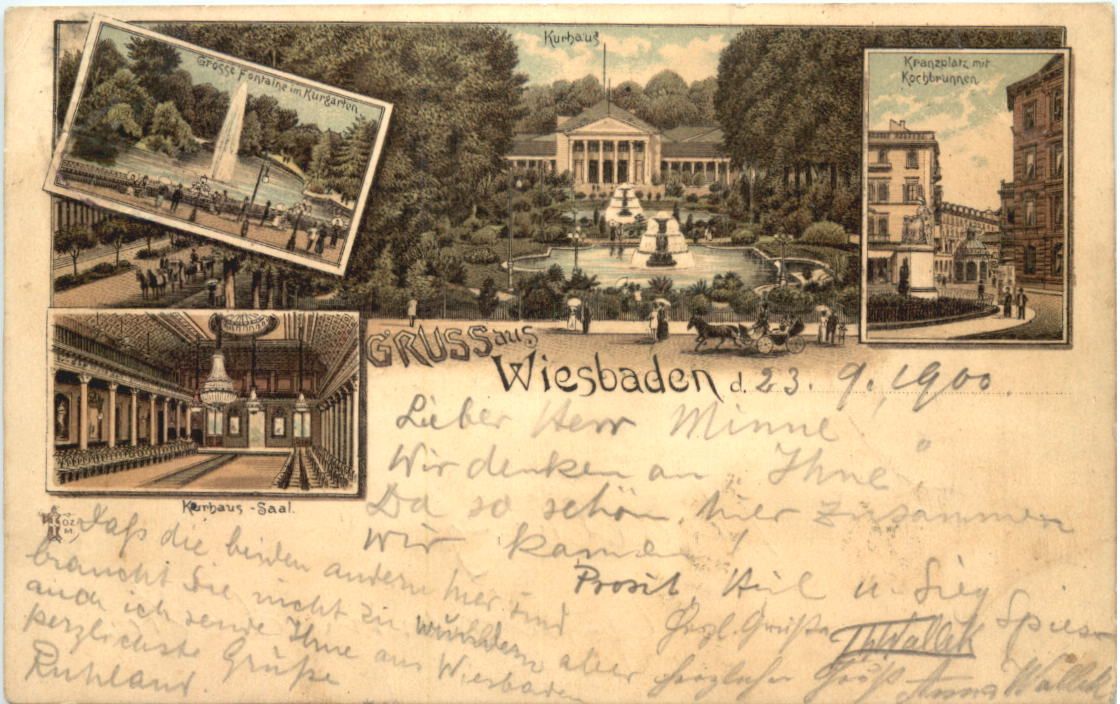 Grosse Fontaine im Kurgarten
Kurhaus
Kranzplatz mit
Kochbrunnen
GRUSS aus
Wiesbaden d. 23. 9. 1900.
Lieber Herr Minne
Wir denken an „Ihne“
Da so schön hier zusammen
wir kamen!
Prosit, Heil u. Sieg
Herzl. Grüße Th Wallek Spies
aller herzlicher Grüß Anna Wallek
Kurhaus - Saal.
Daß die beiden andern hier sind
braucht Sie nicht zu wundern
auch ich sende Ihne aus Wiesbaden
herzlichste Grüße
Ruhland.